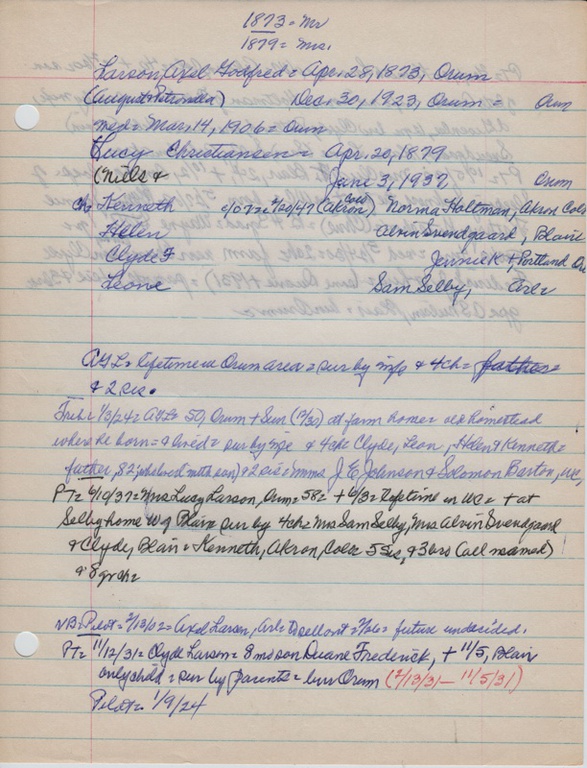 1873 = Mr
1879 = Mrs.
Larson, Axel Godfred = Apr. 28, 1873, Orum
(August & Petronella) Dec. 30, 1923, Orum = Orum
med = Mar, 14, 1906 = Orum
Lucy Christiansen = Apr. 20, 1879
(Niels & June 3, 1937 Orum
Ch = Kenneth c/o 72 = 2/20/47 (Akron Colo) Norma Haltman, Akron Colo
Helen Alvin Svendgaard, Blair
Clyde F Jennie K + Portland Ore
Leone Sam Selby, Arl =
AGL = lifetime in Orum area = sur by wife & 4 ch = father =
& 2 sis.
Trib = 1/3/24 = AGL = 50, Orum + Sun (12/30) at farm home = old homestead
where he born = & lived = sur by wife & 4 ch = Clyde, Leon, Helen & Kenneth =
father, 82, who lived with son) & 2 sis = mmes J. E. Johnson & Solomon Barton, WC,
PT = 6/10/37 = Mrs Lucy Larson, Orum = 58 = + 6/3 = lifetime in WC = + at
Selby home W of Blair = sur by 4 ch = Mrs Sam Selby, Mrs Alvin Svendgaard
& Clyde, Blair = Kenneth, Akron, Colo = 5 sis, & 3 bros (all named)
& 8 gr ch =
NB = Pilot = 2/13/02 = Axel Larson, Arl = to sell out = 2/26 = future undecided.
PT = 11/12/31 = Clyde Larson = 8 mo son Duane Frederick, + 11/5, Blair
only child = sur by parents = bur Orum (2/13/31 – 11/5/31)
Pilot = 1/9/24